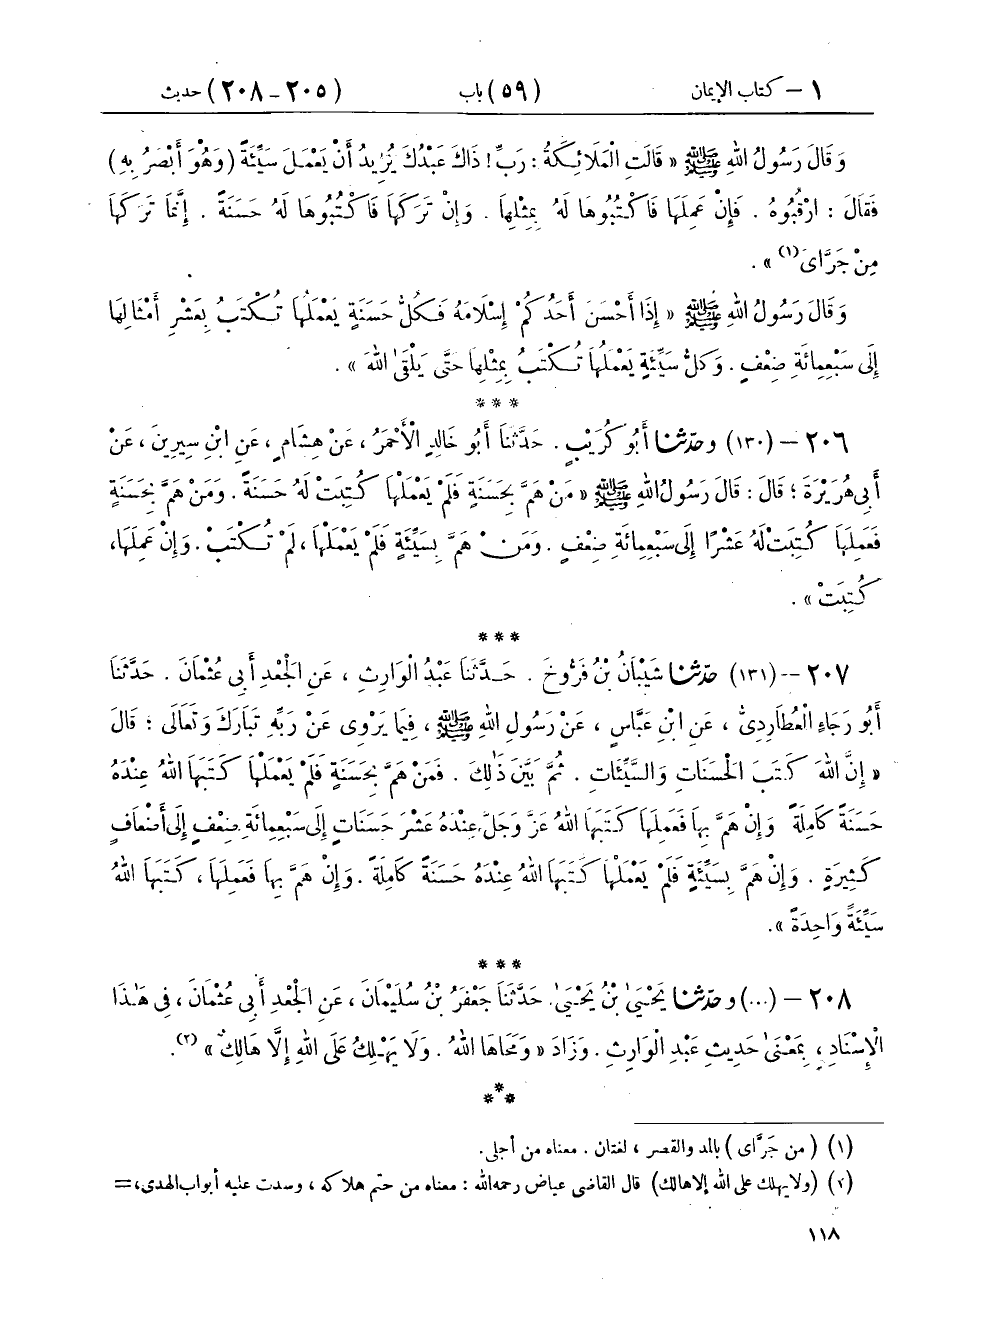 ١ – كتاب الإيمان (٥٩) باب (٢٠٥ – ٢٠٨) حديث
وَقَالَ رَسُولُ اللهِ ﷺ « قَالَتِ الْمَلَائِكَةُ : رَبِّ ! ذَاكَ عَبْدُكَ يُرِيدُ أَنْ يَعْمَلَ سَيِّئَةً (وَهُوَ أَبْصَرُ بِهِ)
فَقَالَ : ارْقُبُوهُ . فَإِنْ عَمِلَهَا فَاكْتُبُوهَا لَهُ بِمِثْلِهَا . وَإِنْ تَرَكَهَا فَاكْتُبُوهَا لَهُ حَسَنَةً . إِنَّمَا تَرَكَهَا
مِنْ جَرَّاىَ(١) » .
وَقَالَ رَسُولُ اللهِ ﷺ « إِذَا أَحْسَنَ أَحَدُكُمْ إِسْلَامَهُ فَكُلُّ حَسَنَةٍ يَعْمَلُهَا تُكْتَبُ بِعَشْرِ أَمْثَالِهَا
إِلَى سَبْعِمِائَةِ ضِعْفٍ . وَكُلُّ سَيِّئَةٍ يَعْمَلُهَا تُكْتَبُ بِمِثْلِهَا حَتَّى يَلْقَى اللهَ » .
* * *
٢٠٦ – (١٣٠) وحَدَّثَنَا أَبُو كُرَيْبٍ . حَدَّثَنَا أَبُو خَالِدٍ الْأَحْمَرُ ، عَنْ هِشَامٍ ، عَنِ ابْنِ سِيرِينَ ، عَنْ
أَبِي هُرَيْرَةَ ؛ قَالَ : قَالَ رَسُولُ اللهِ ﷺ « مَنْ هَمَّ بِحَسَنَةٍ فَلَمْ يَعْمَلْهَا كُتِبَتْ لَهُ حَسَنَةً . وَمَنْ هَمَّ بِحَسَنَةٍ
فَعَمِلَهَا كُتِبَتْ لَهُ عَشْرًا إِلَى سَبْعِمِائَةِ ضِعْفٍ . وَمَنْ هَمَّ بِسَيِّئَةٍ فَلَمْ يَعْمَلْهَا ، لَمْ تُكْتَبْ . وَإِنْ عَمِلَهَا ،
كُتِبَتْ » .
* * *
٢٠٧ – (١٣١) حَدَّثَنَا شَيْبَانُ بْنُ فَرُّوخَ . حَدَّثَنَا عَبْدُ الْوَارِثِ ، عَنِ الْجَعْدِ أَبِي عُثْمَانَ . حَدَّثَنَا
أَبُو رَجَاءٍ الْعُطَارِدِيُّ ، عَنِ ابْنِ عَبَّاسٍ ، عَنْ رَسُولِ اللهِ ﷺ ، فِيمَا يَرْوِى عَنْ رَبِّهِ تَبَارَكَ وَتَعَالَى ؛ قَالَ
« إِنَّ اللهَ كَتَبَ الْحَسَنَاتِ وَالسَّيِّئَاتِ . ثُمَّ بَيَّنَ ذَٰلِكَ . فَمَنْ هَمَّ بِحَسَنَةٍ فَلَمْ يَعْمَلْهَا كَتَبَهَا اللهُ عِنْدَهُ
حَسَنَةً كَامِلَةً وَإِنْ هَمَّ بِهَا فَعَمِلَهَا كَتَبَهَا اللهُ عَزَّ وَجَلَّ عِنْدَهُ عَشْرَ حَسَنَاتٍ إِلَى سَبْعِمِائَةِ ضِعْفٍ إِلَى أَضْعَافٍ
كَثِيرَةٍ . وَإِنْ هَمَّ بِسَيِّئَةٍ فَلَمْ يَعْمَلْهَا كَتَبَهَا اللهُ عِنْدَهُ حَسَنَةً كَامِلَةً . وَإِنْ هَمَّ بِهَا فَعَمِلَهَا ، كَتَبَهَا اللهُ
سَيِّئَةً وَاحِدَةً » .
* * *
٢٠٨ – (...) وحَدَّثَنَا يَحْيَىٰ بْنُ يَحْيَىٰ. حَدَّثَنَا جَعْفَرُ بْنُ سُلَيْمَانَ ، عَنِ الْجَعْدِ أَبِي عُثْمَانَ ، فِي هَٰذَا
الْإِسْنَادِ ، بِمَعْنَىٰ حَدِيثِ عَبْدِ الْوَارِثِ . وَزَادَ « وَمَحَاهَا اللهُ . وَلَا يَهْلِكُ عَلَى اللهِ إِلَّا هَالِكٌ » (٢).
* * *
(١) (من جَرَّاى) بالمد والقصر ، لغتان . معناه من أجلى.
(٢) (ولا يهلك على الله إلا هالك) قال القاضى عياض رحمه الله : معناه من حتم هلاكه ، وسدت عليه أبواب الهدى، =
١١٨